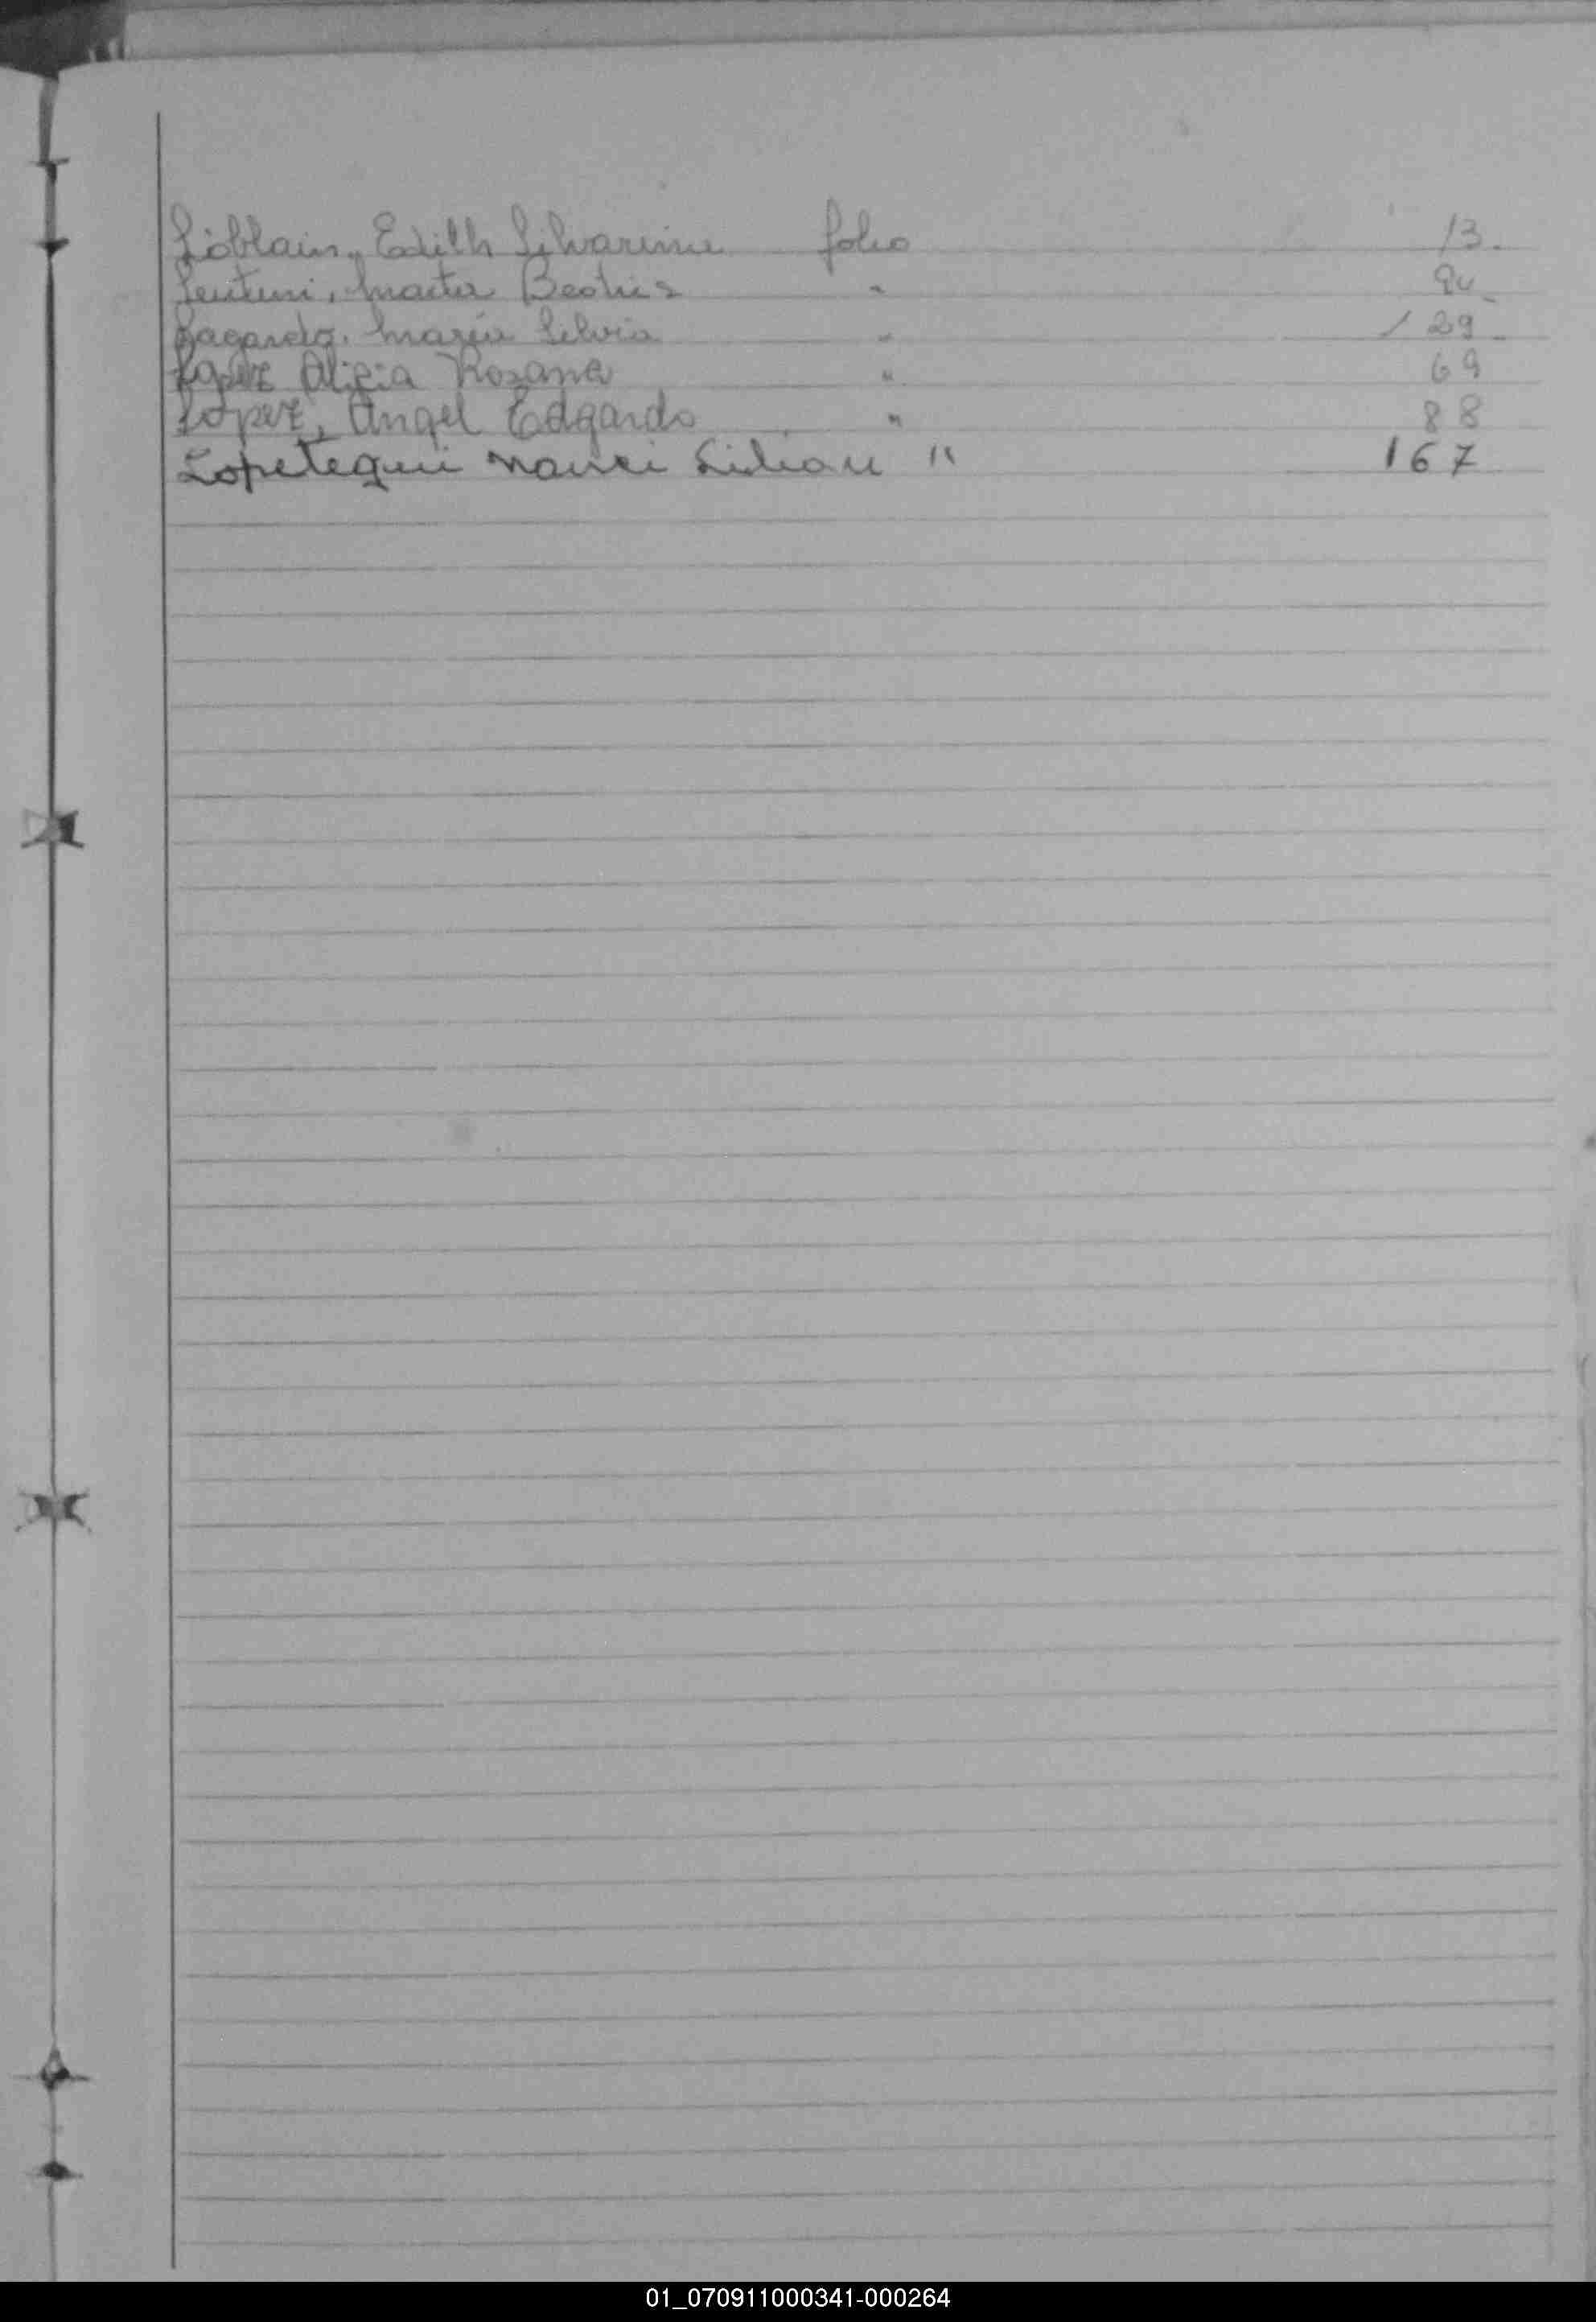 Lioblain, Edith Silvarina folio 13.
Lenturi, Marta Beatriz " 24
Lagardo, María Silvia " 29
Lopez Alicia Rosana " 69
Lopez, Angel Edgardo " 88
Lopetegui Nanci Lilian " 167
01_070911000341-000264